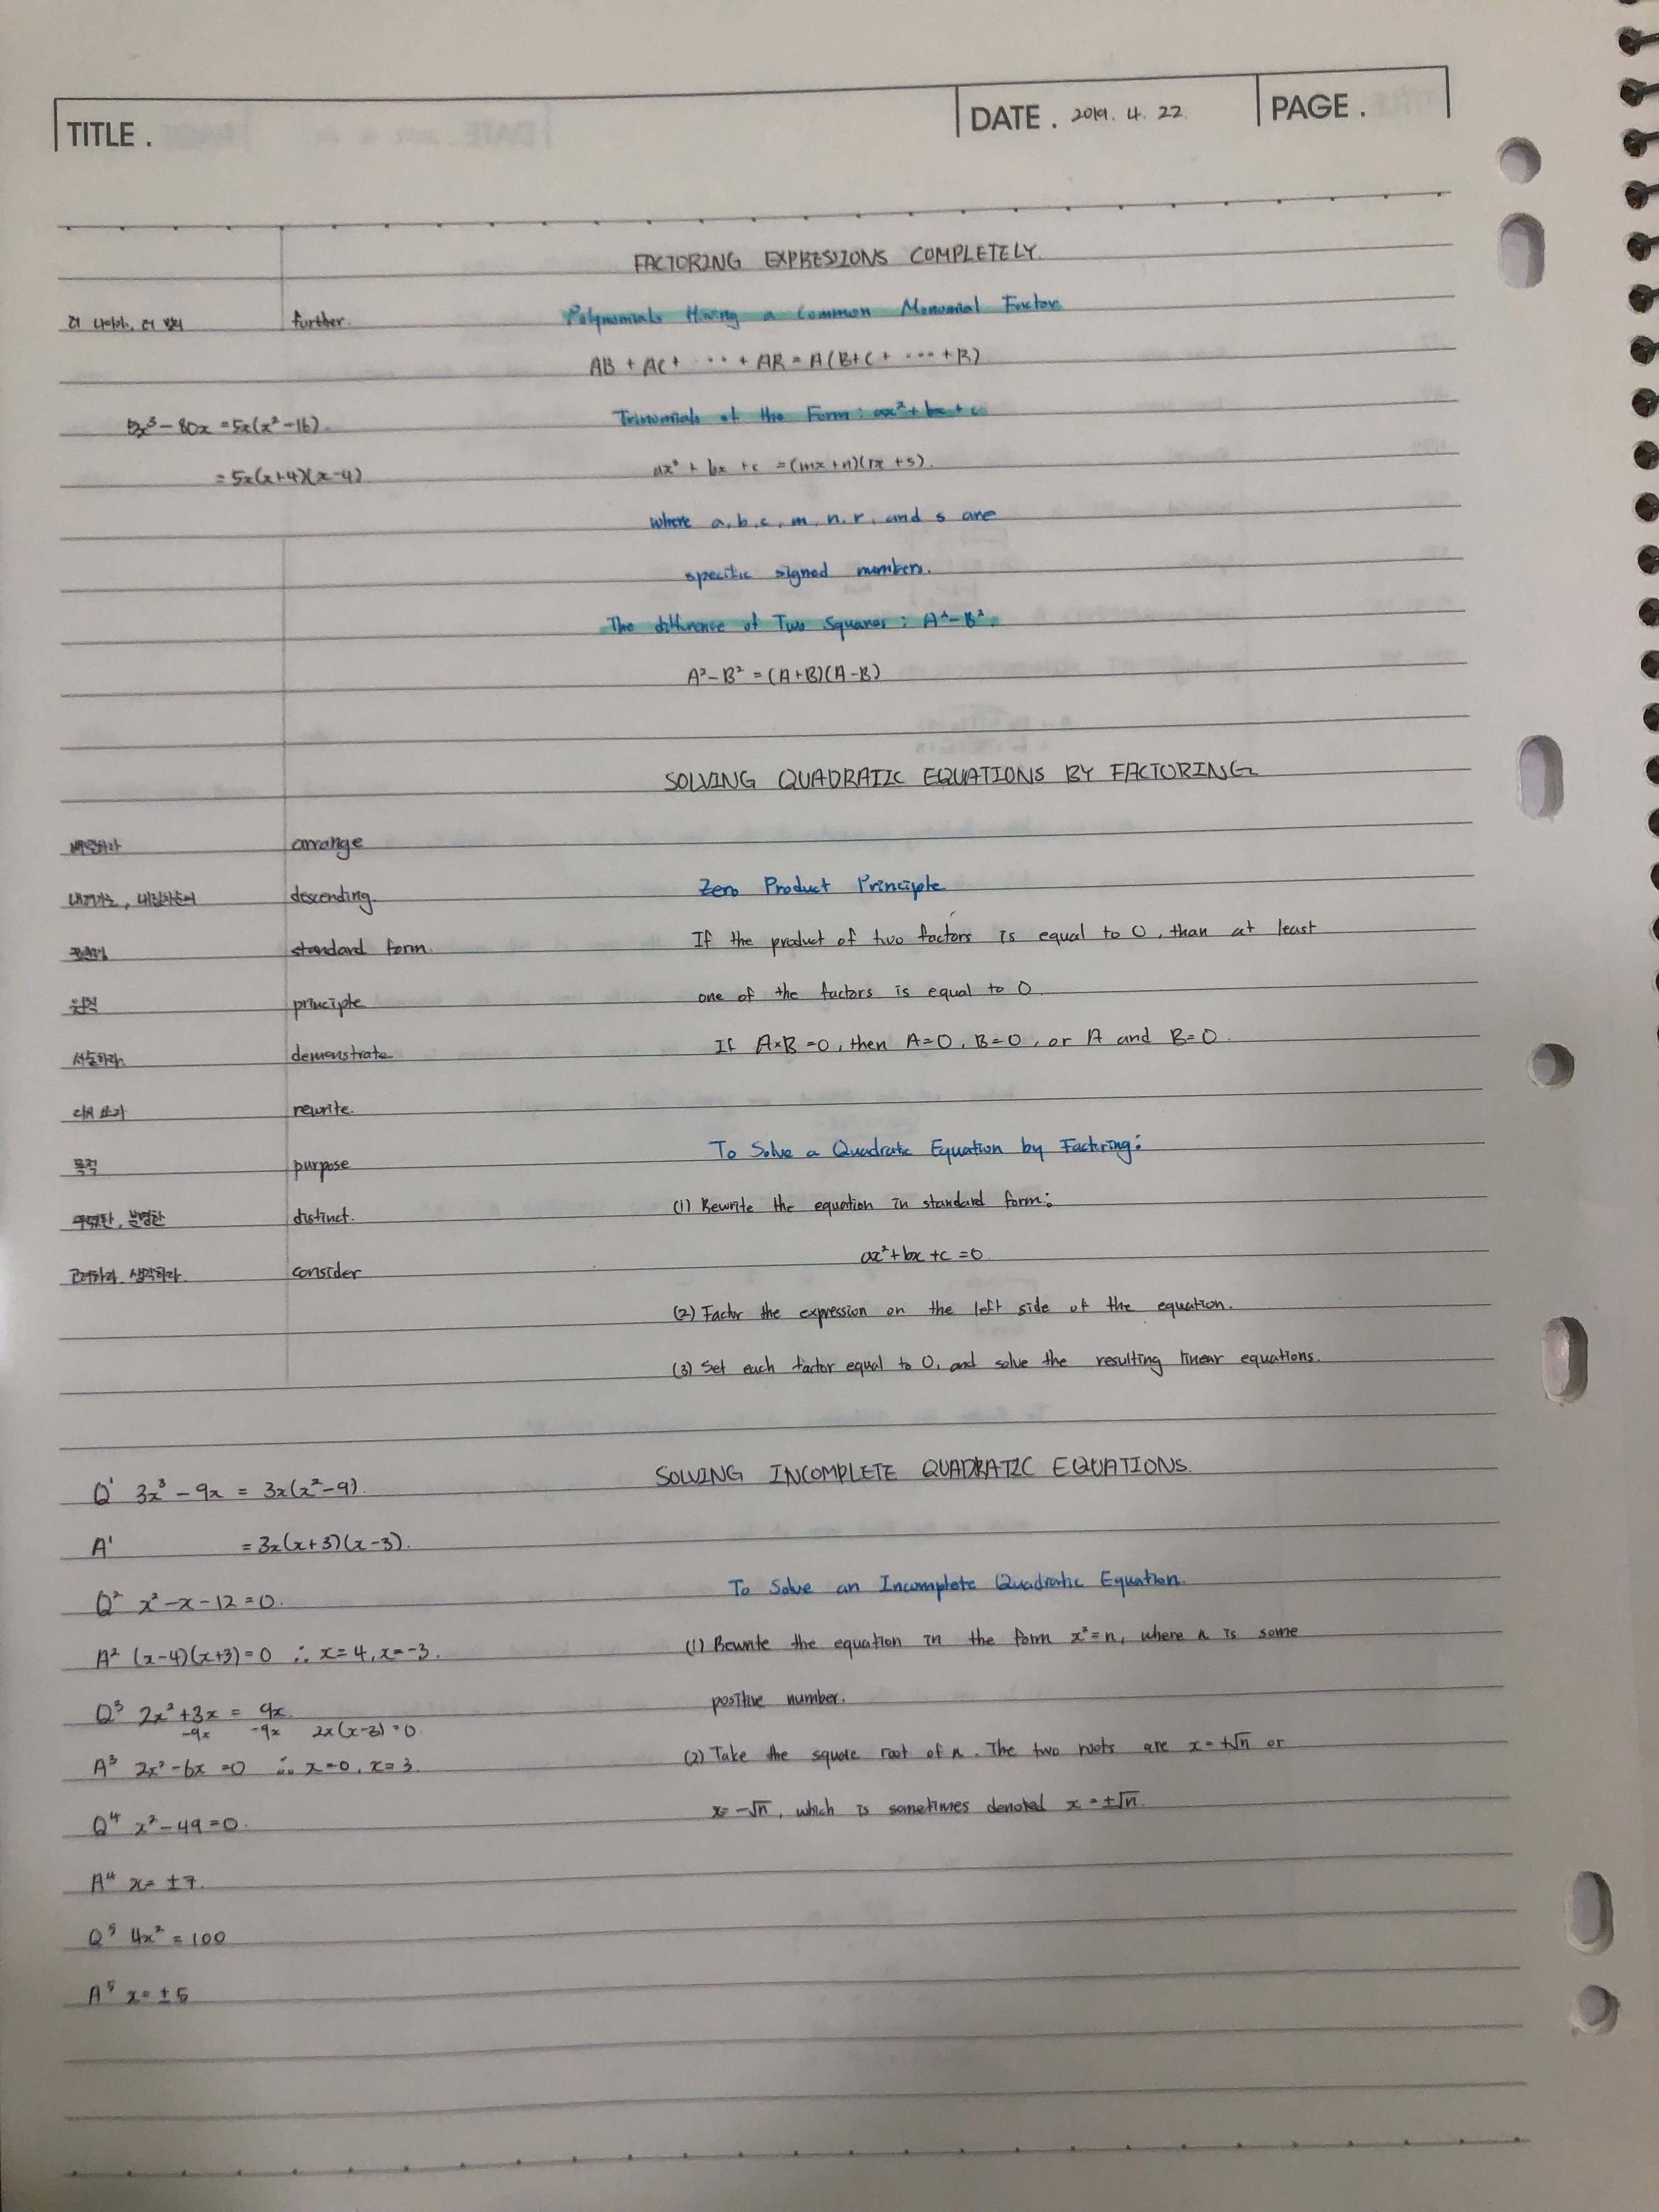 TITLE .
DATE . 2019. 4. 22.
PAGE .
FACTORING EXPRESIONS COMPLETELY.
더 나아가, 더 멀리
further.
Polynomials Having a Common Monomial Factor.
AB + AC + ···· + AR = A(B+C+ ···· +R)
5x³ - 80x = 5x(x² - 16).
Trinomials of the Form : ax² + bx + c
= 5x(x+4)(x-4)
ax² + bx + c = (mx + n)(rx + s).
where a, b, c, m, n, r, and s are
specific signed numbers.
The difference of Two Squares : A² - B².
A² - B² = (A+B)(A-B)
SOLVING QUADRATIC EQUATIONS BY FACTORING
배열하라
arrange
내려가는, 내림차순의
descending.
Zero Product Principle
표준형
standard form.
If the product of two factors is equal to 0, than at least
원칙
principle
one of the factors is equal to 0.
서술하라.
demonstrate
If A×B = 0, then A=0, B=0, or A and B=0.
다시 쓰기
rewrite.
목적
purpose
To Solve a Quadratic Equation by Factoring:
뚜렷한, 분명한
distinct.
(1) Rewrite the equation in standard form:
고려하라, 생각하라.
consider
ax² + bx + c = 0.
(2) Factor the expression on the left side of the equation.
(3) Set each factor equal to 0, and solve the resulting linear equations.
SOLVING INCOMPLETE QUADRATIC EQUATIONS.
Q¹ 3x³ - 9x = 3x(x² - 9).
A¹ = 3x(x+3)(x-3).
To Solve an Incomplete Quadratic Equation.
Q² x² - x - 12 = 0.
A² (x-4)(x+3) = 0 ∴ x = 4, x = -3.
(1) Rewrite the equation in the form x² = n, where n is some
positive number.
Q³ 2x² + 3x = 9x.
-9x -9x 2x(x-3) = 0.
A³ 2x² - 6x = 0 ∴ x = 0, x = 3.
(2) Take the square root of n. The two roots are x = +√n or
x = -√n, which is sometimes denoted x = ±√n.
Q⁴ x² - 49 = 0.
A⁴ x = ±7.
Q⁵ 4x² = 100
A⁵ x = ±5